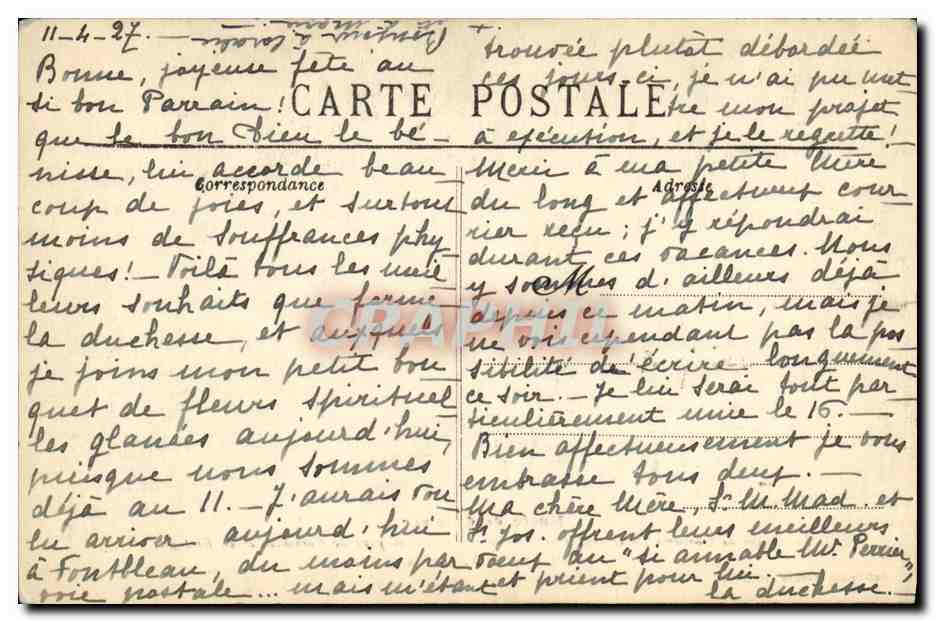 11-4-27. —
Bonjour à
à
+
Bonne, joyeuse fête au
si bon Parrain!
CARTE POSTALE
que le bon Dieu le bé-
nisse, lui accorde beau
Correspondance
coup de joies, et surtout
moins de souffrances phy
siques! — Voilà tous les meil
leurs souhaits que forme
la duchesse, et auxquels
je joins mon petit bou
quet de fleurs spirituel
les glanées aujourd'hui,
puisque nous sommes
déjà au 11. — J'aurais vou
lu arriver aujourd'hui
à Fontbleau, du moins par
voie postale... mais m'étant
trouvée plutôt débordée
ces jours-ci, je n'ai pu met
tre mon projet
à exécution, et je le regrette!
Merci à ma petite Mère
Adresse
du long et affectueux cour
rier reçu; j'y répondrai
durant ces vacances. Nous
M
y sommes d'ailleurs déjà
depuis ce matin, mais je
CPAPHIL
ne vois cependant pas la pos
sibilité de l'écrire longuement
ce soir. — Je lui serai tout par
ticulièrement unie le 16. —
Bien affectueusement je vous
embrasse tous deux. —
Ma chère Mère, Sr M. Mad. et
Sr Jos. offrent leurs meilleurs
voeux au "si aimable Mr Perrier",
et prient pour lui.
la duchesse. —